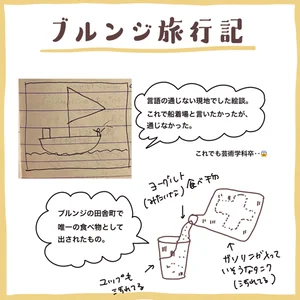 ブルンジ旅行記
言語の通じない現地でした絵談。
これで船着場と言いたかったが、
通じなかった。
これでも芸術学科卒‥😱
ヨーグルト
(みたいな)食べ物
ブルンジの田舎町で
唯一の食べ物として
出されたもの。
ガソリンが入って
いそうなタンク
(汚れてる)
コップも
汚れてる